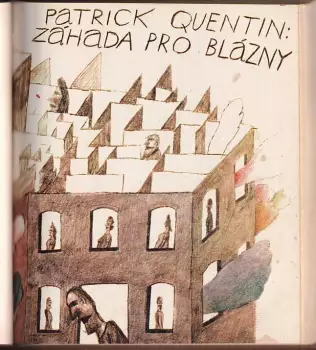 PATRICK QUENTIN:
ZÁHADA PRO BLÁZNY